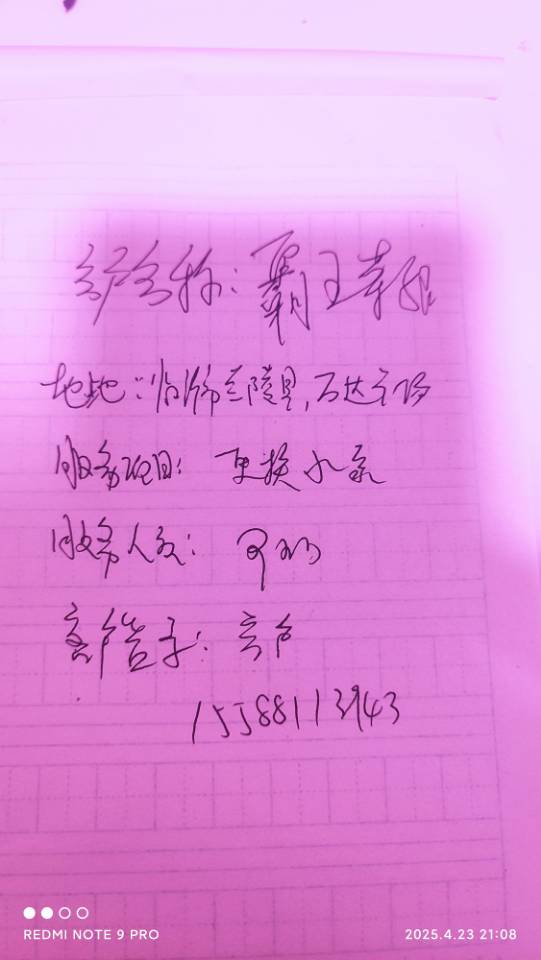 客户名称：霸王茶姬
地址：临沂兰陵县，万达广场
服务项目：更换水泵
服务人员：
客户签字：客户
15588113943
REDMI NOTE 9 PRO
2025.4.23 21:08